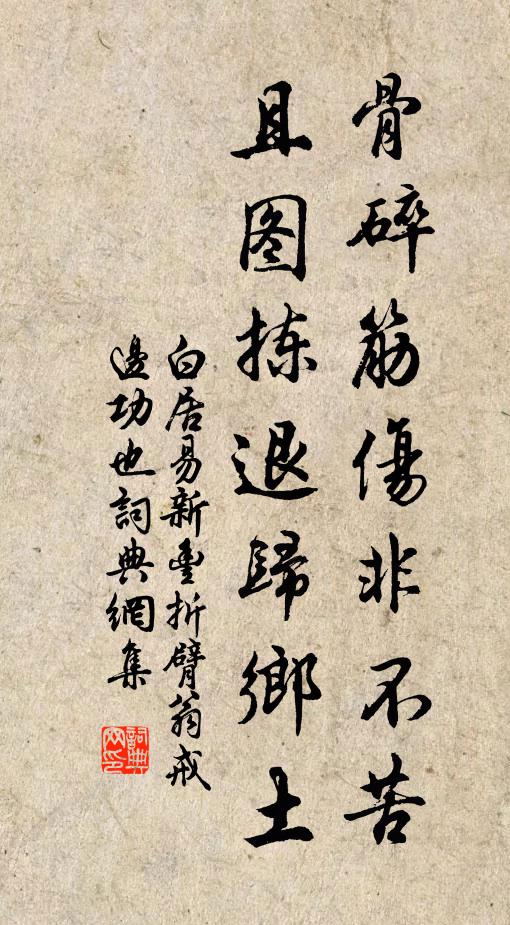 骨碎筋傷非不苦
且图拣退歸鄉土
白居易新豊折臂翁戒
邊功也詞典網集
詞典网印